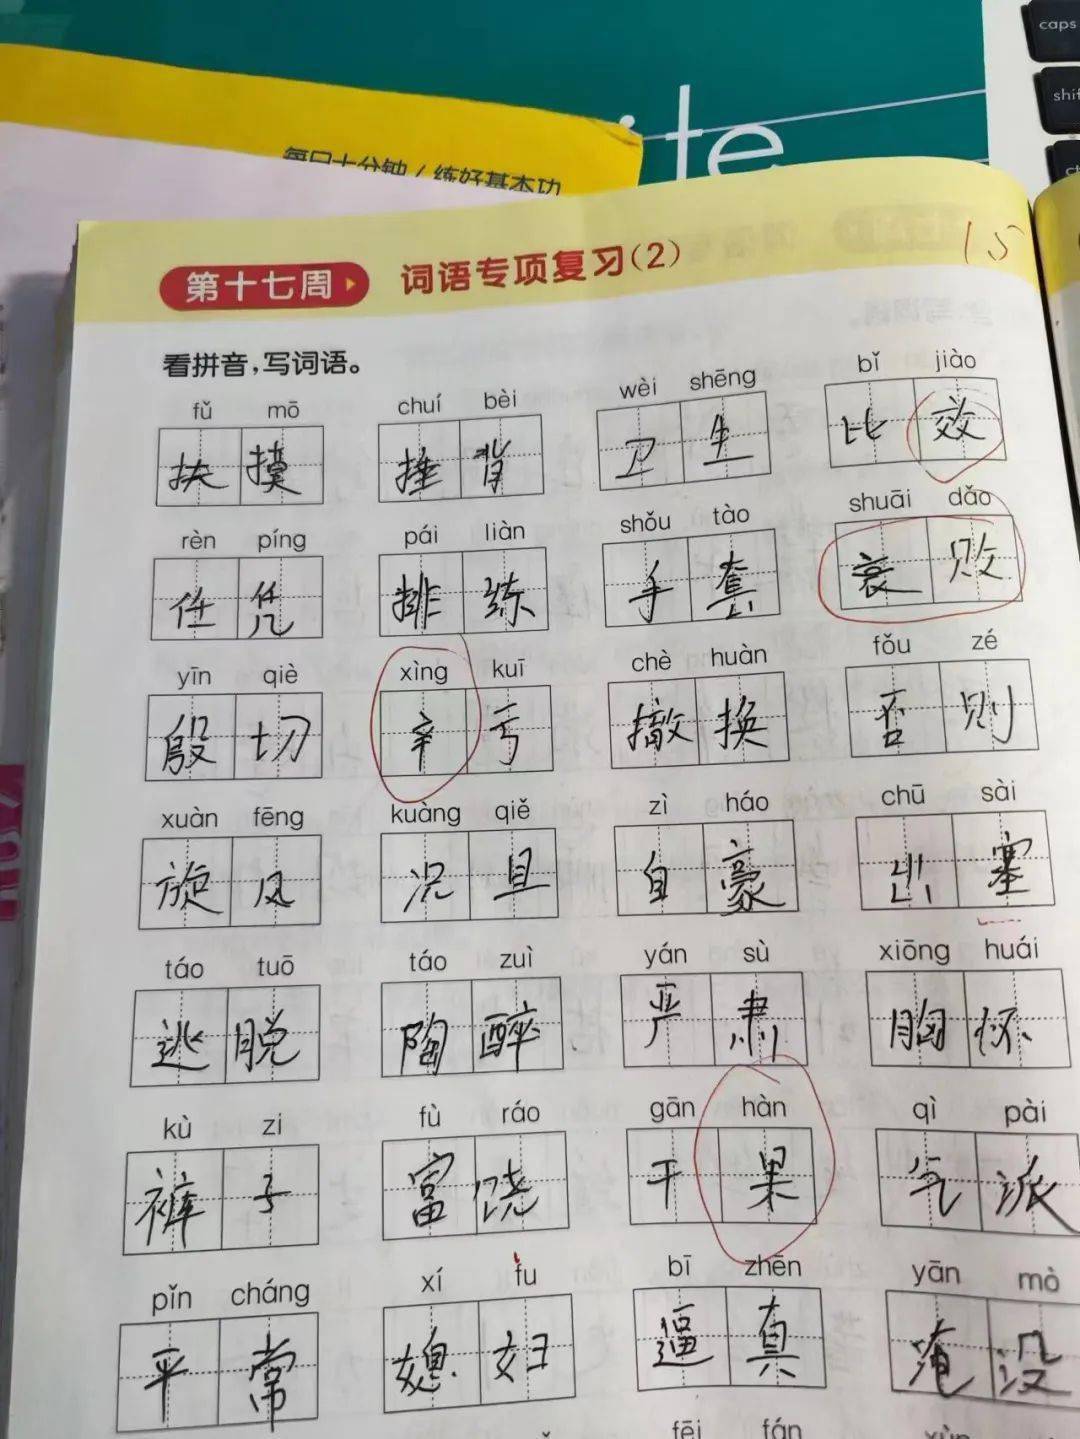 caps
shift
ite
每日十分钟/练好基本功
第十七周 词语专项复习(2) 15
看拼音,写词语。
fǔ mō chuí bèi wèi shēng bǐ jiào
扶摸 捶背 卫生 比效
rèn píng pái liàn shǒu tào shuāi dǎo
任凭 排练 手套 衰败
yīn qiè xìng kuī chè huàn fǒu zé
殷切 辛亏 撤换 否则
xuàn fēng kuàng qiě zì háo chū sài
旋风 况且 自豪 出塞
táo tuō táo zuì yán sù xiōng huái
逃脱 陶醉 严肃 胸怀
kù zi fù ráo gān hàn qì pài
裤子 富饶 干果 气派
pǐn cháng xí fu bī zhēn yān mò
平常 媳妇 逼真 淹没
fēi fán